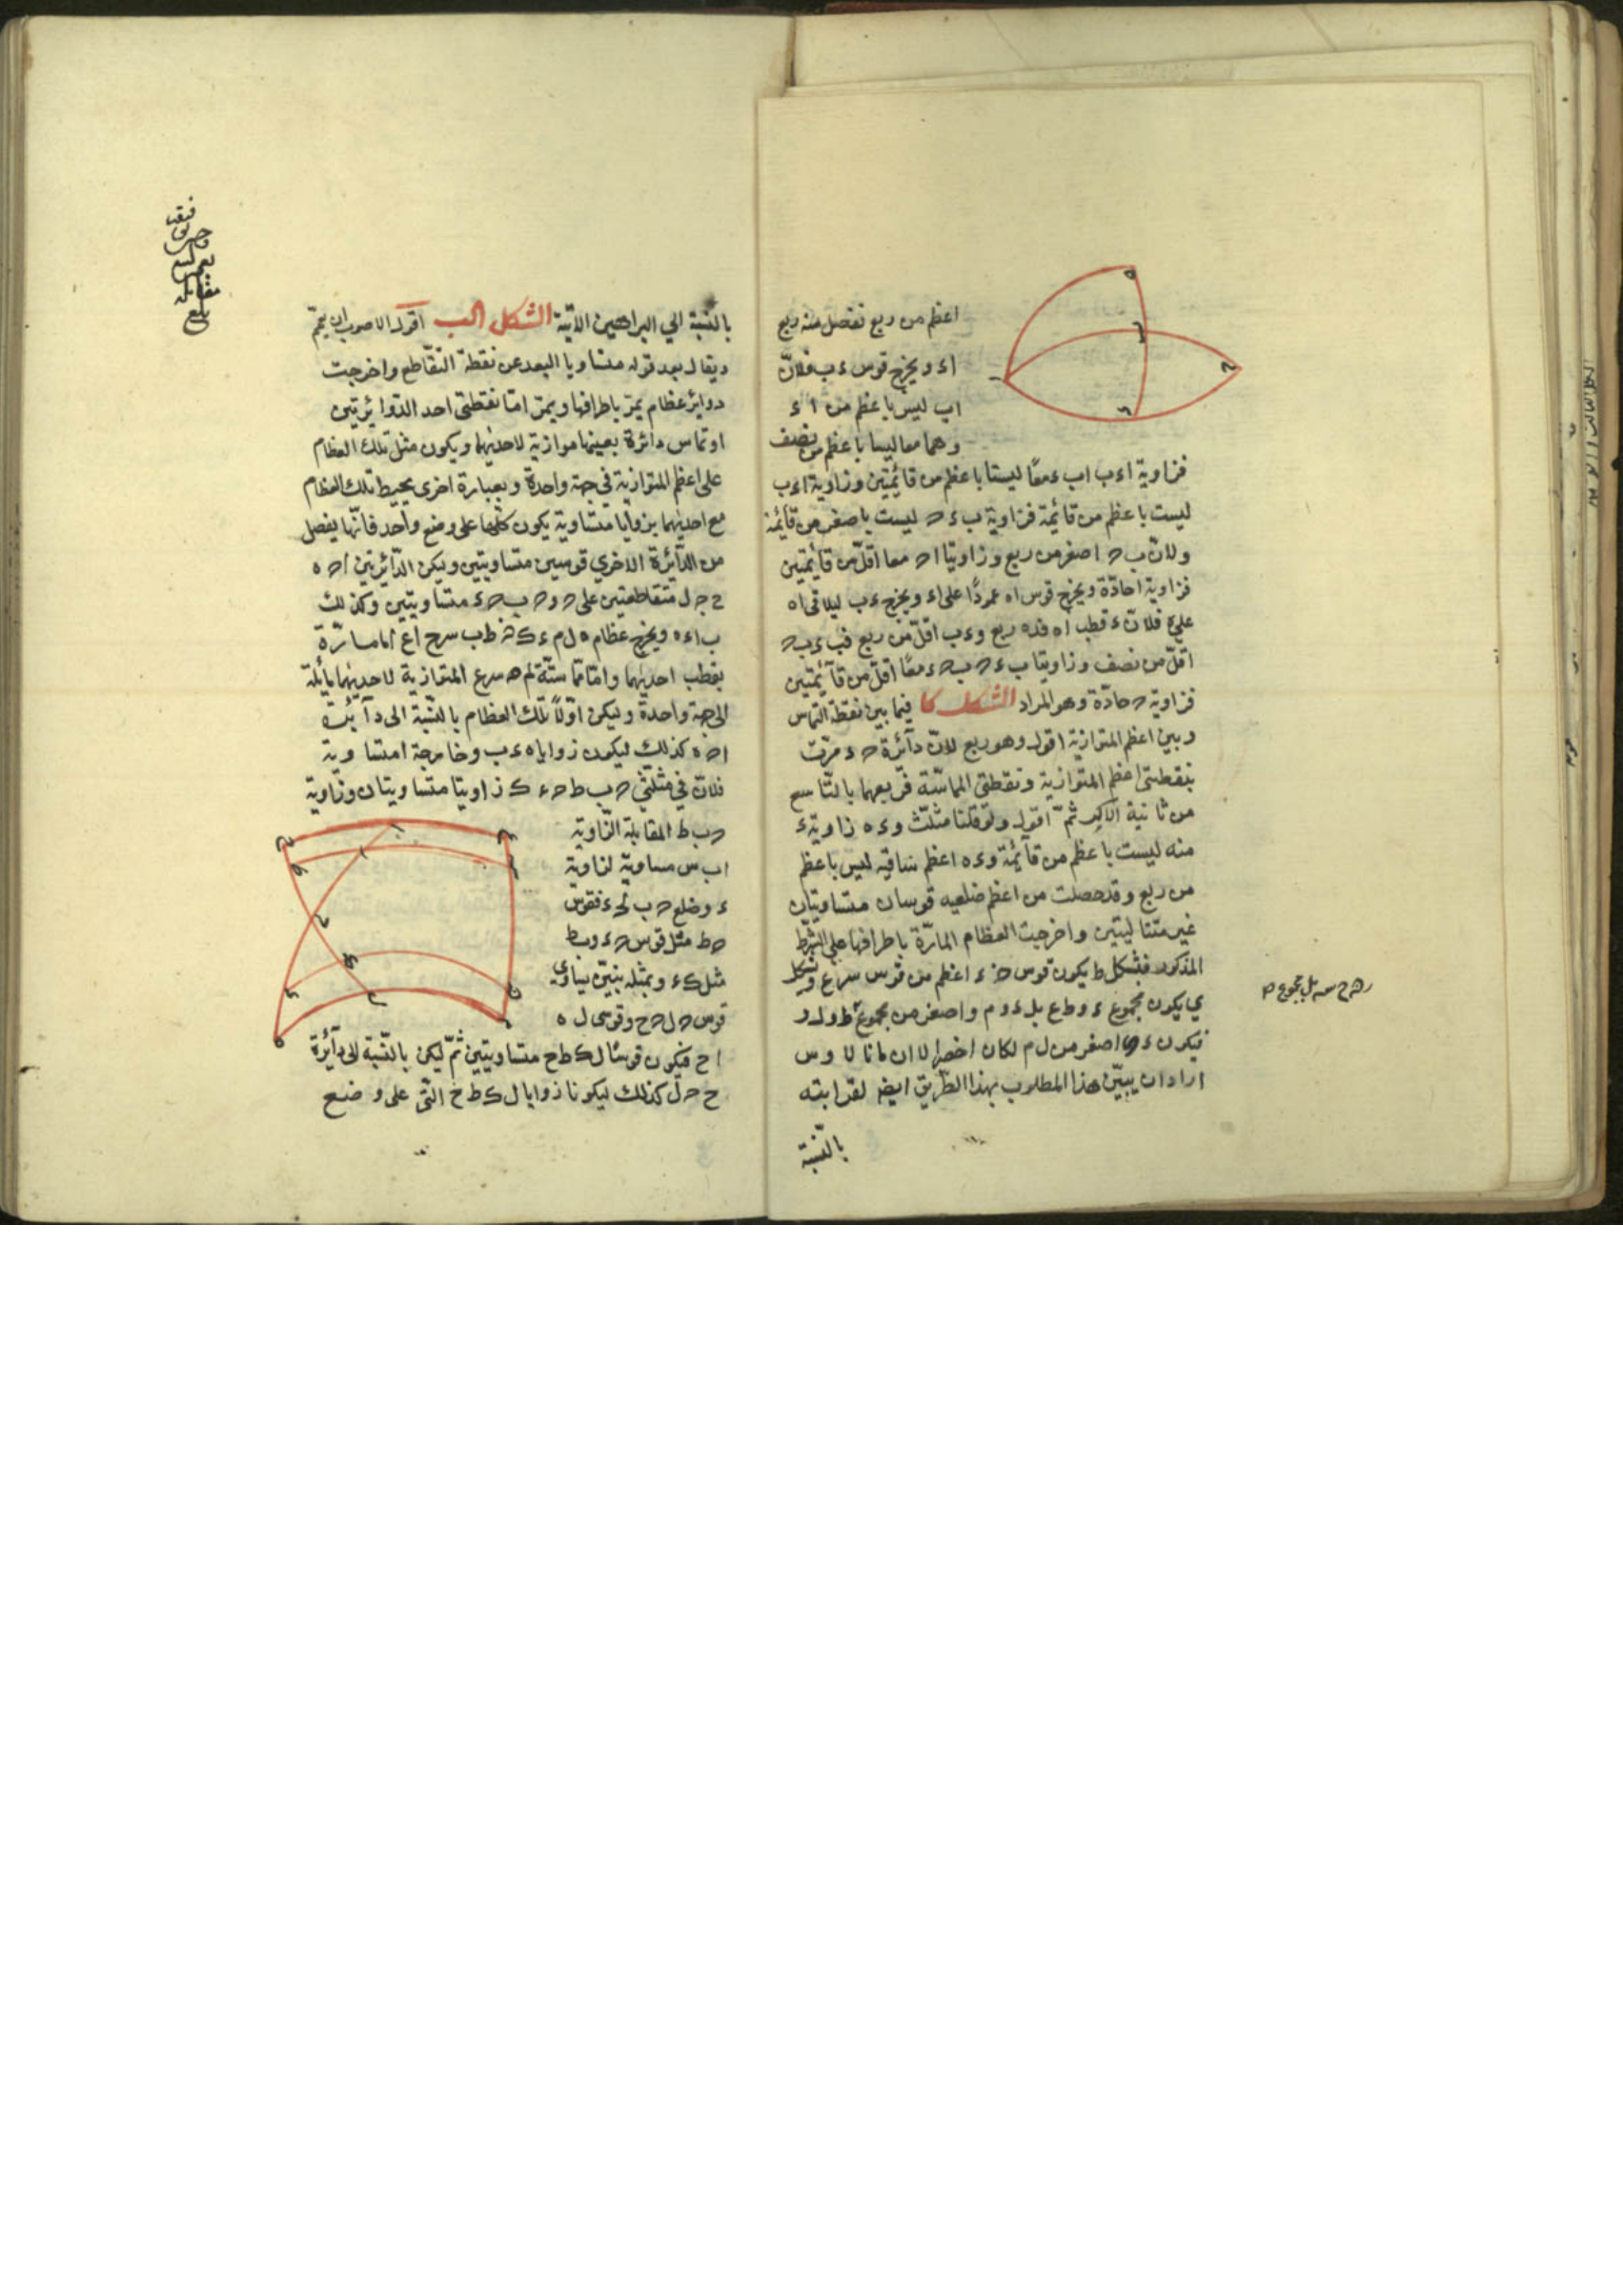 اعظم من ربع نفصل منه ربع
اء ويخرج قوس ء ب فلانّ
اب ليس باعظم من اء
وهما معا ليسا باعظم من نصف
فزاوية اءب اب ء معًا ليستا باعظم من قائمتين وزاوية اءب
ليست باعظم من قائمة فزاوية ب ء ح ليست باصغر من قائمة
ولانّ ب ح اصغر من ربع وزاويتا اح معا اقلّ من قائمتين
فزاوية ا حادّة ويخرج قوس اه عمودًا على اء ويخرج ءب ليلاقى اه
على ه فلانّ ء قطب اه فده ربع وءب اقلّ من ربع فب ء ب ح
اقلّ من نصف وزاويتا ب ء ح ب ح ء معًا اقلّ من قائمتين
فزاوية ح حادّة وهو المراد الشكل كا فيما بين نقطة التماس
وبين اعظم المتوازية اقول وهو ربع لانّ دآئرة ح ء مرّت
بنقطتى اعظم المتوازية ونقطتى المماسّة فربعهما بالتّاسع
من ثانية الاكر ثمّ اقول ولو قلنا مثلّث وء ه زاوية ء
منه ليست باعظم من قآئمة وء ه اعظم ساقيه ليس باعظم
من ربع وقد حصلت من اعظم ضلعيه قوسان متساويتان
غير متتاليتين واخرجت العظام المارّة باطرافها على الشّرط
المذكور فبشكل ط يكون قوس ح ء اعظم من قوس سرع وبشكل
ي يكون مجموع ء و ط ع بل ء و م واصغر من مجموع ط و ل و
فيكون ء اصغر من ل م لكان اخصر الا ان مانالاوس
اراد ان يبيّن هذا المطلوب بهذا الطّريق ايض لقرابته
بالنّسبة
بالنّسبة الي البراهين الآتية الشكل الب اقول الاصوب ان يعمّ
ويقال بعد قوله متساويا البعد عن نقطة التّقاطع واخرجت
دوائر عظام يمرّ باطرافها ويمرّ امّا بنقطتى احد الدّوائرتين
او تماس دائرة بعينها موازية لاحديهما ويكون مثل تلك العظام
على اعظم المتوازية في جهة واحدة وبعبارة اخرى يحيط تلك العظام
مع احديهما بزوايا متساوية يكون كلّها على وضع واحد فانّها يفصل
من الدّآئرة الاخري قوسين متساويتين وليكن الدّائرتين اح ه
ح ح ل متقاطعتين على ح و ح ب ح ء متساويتين وكذلك
ب ا ء ه ويخرج عظام ه ل م ء ك ن ط ب س ح ا ع امّا مارّة
بقطب احديهما وامّا مماسّة لم ه س ع المتوازية لاحديهما مايلة
الى جهة واحدة وليكن اوّلاً تلك العظام بالنّسبة الى دآئرة
اح ه كذلك ليكون زوايا ه ء ب وخارجة ا متساوية
فلانّ في مثلّثى ح ب ط ح ء ك زاويتا متساويتان وزاوية
ح ب ط المقابلة الزّاوية
اب س مساوية لزاوية
ء وضلع ح ب لح ء فقوس
ح ط مثل قوس ح ء وب ط
مثل ك ء وبمثله يتبيّن تساوي
قوس ح ل ح ح وقوسى ل ه
اح فيكون قوسا ل ك ط ح متساويتين ثمّ ليكن بالنّسبة الى دآئرة
ح ح ل كذلك ليكونا زوايا ل ك ط ح التّى على وضع